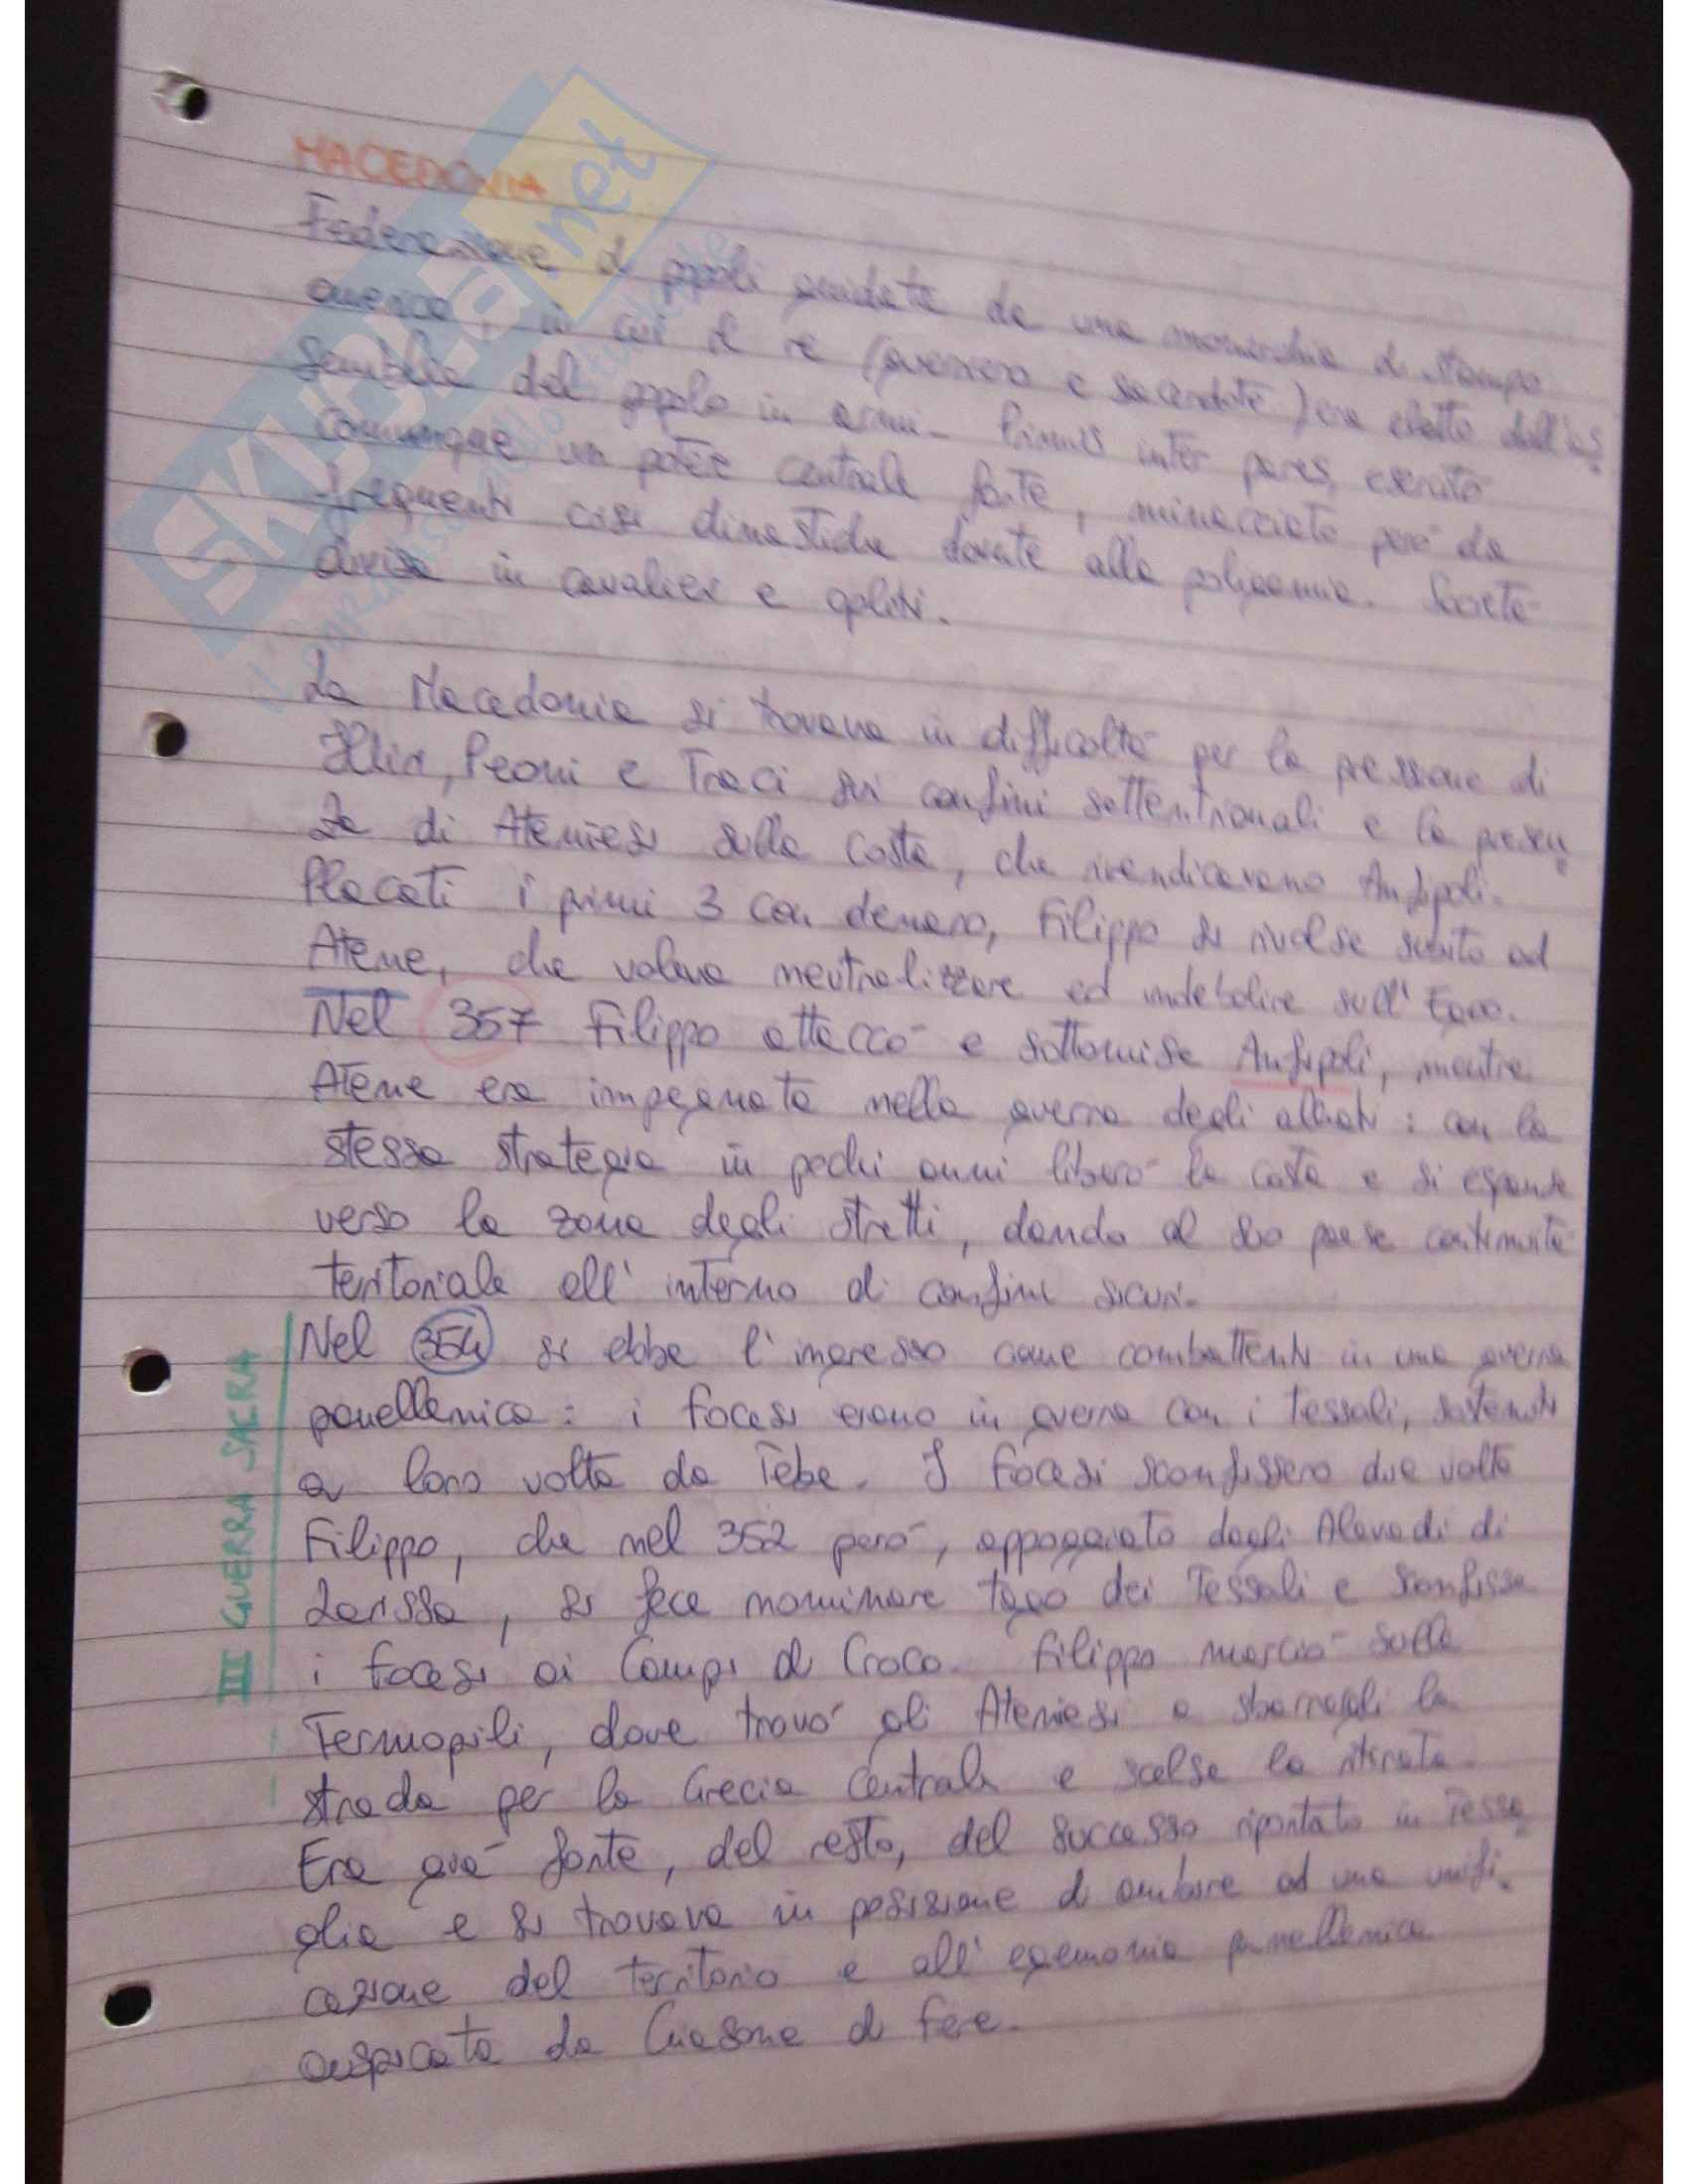 MACEDONIA
Federazione di popoli guidata da una monarchia di stampo
omerico, in cui il re (guerriero e sacerdote) era eletto dall'as
semblea del popolo in armi. Primus inter pares, esercitò
comunque un potere centrale forte, minacciato però da
frequenti crisi dinastiche dovute alla poligamia. Società
divisa in cavalieri e opliti.
La Macedonia si trovava in difficoltà per la pressione di
Illiri, Peoni e Traci sui confini settentrionali e la presen
za di Ateniesi sulla costa, che rivendicavano Anfipoli.
Placati i primi 3 con denaro, Filippo si rivolse subito ad
Atene, che voleva neutralizzare ed indebolire sull'Egeo.
Nel 357 Filippo attaccò e sottomise Anfipoli, mentre
Atene era impegnata nella guerra degli alleati: con la
stessa strategia in pochi anni liberò la costa e si espanse
verso la zona degli stretti, dando al suo paese continuità
territoriale all'interno di confini sicuri.
III GUERRA SACRA
Nel 354 si ebbe l'ingresso come combattenti in una guerra
panellenica: i focesi erano in guerra con i tessali, sostenuti
a loro volta da Tebe. I focesi sconfissero due volte
Filippo, che nel 352 però, appoggiato dagli Alevadi di
Larissa, si fece nominare tago dei Tessali e sconfisse
i focesi ai Campi di Croco. Filippo marciò sulle
Termopili, dove trovò gli Ateniesi a sbarragli la
strada per la Grecia Centrale e scelse la ritirata.
Era già forte, del resto, del successo riportato in Tessa
glia e si trovava in posizione di ambire ad una unifi
cazione del territorio e all'egemonia panellenica
auspicata da Giasone di Fere.
SKUOLA.net
il paradiso dello studente